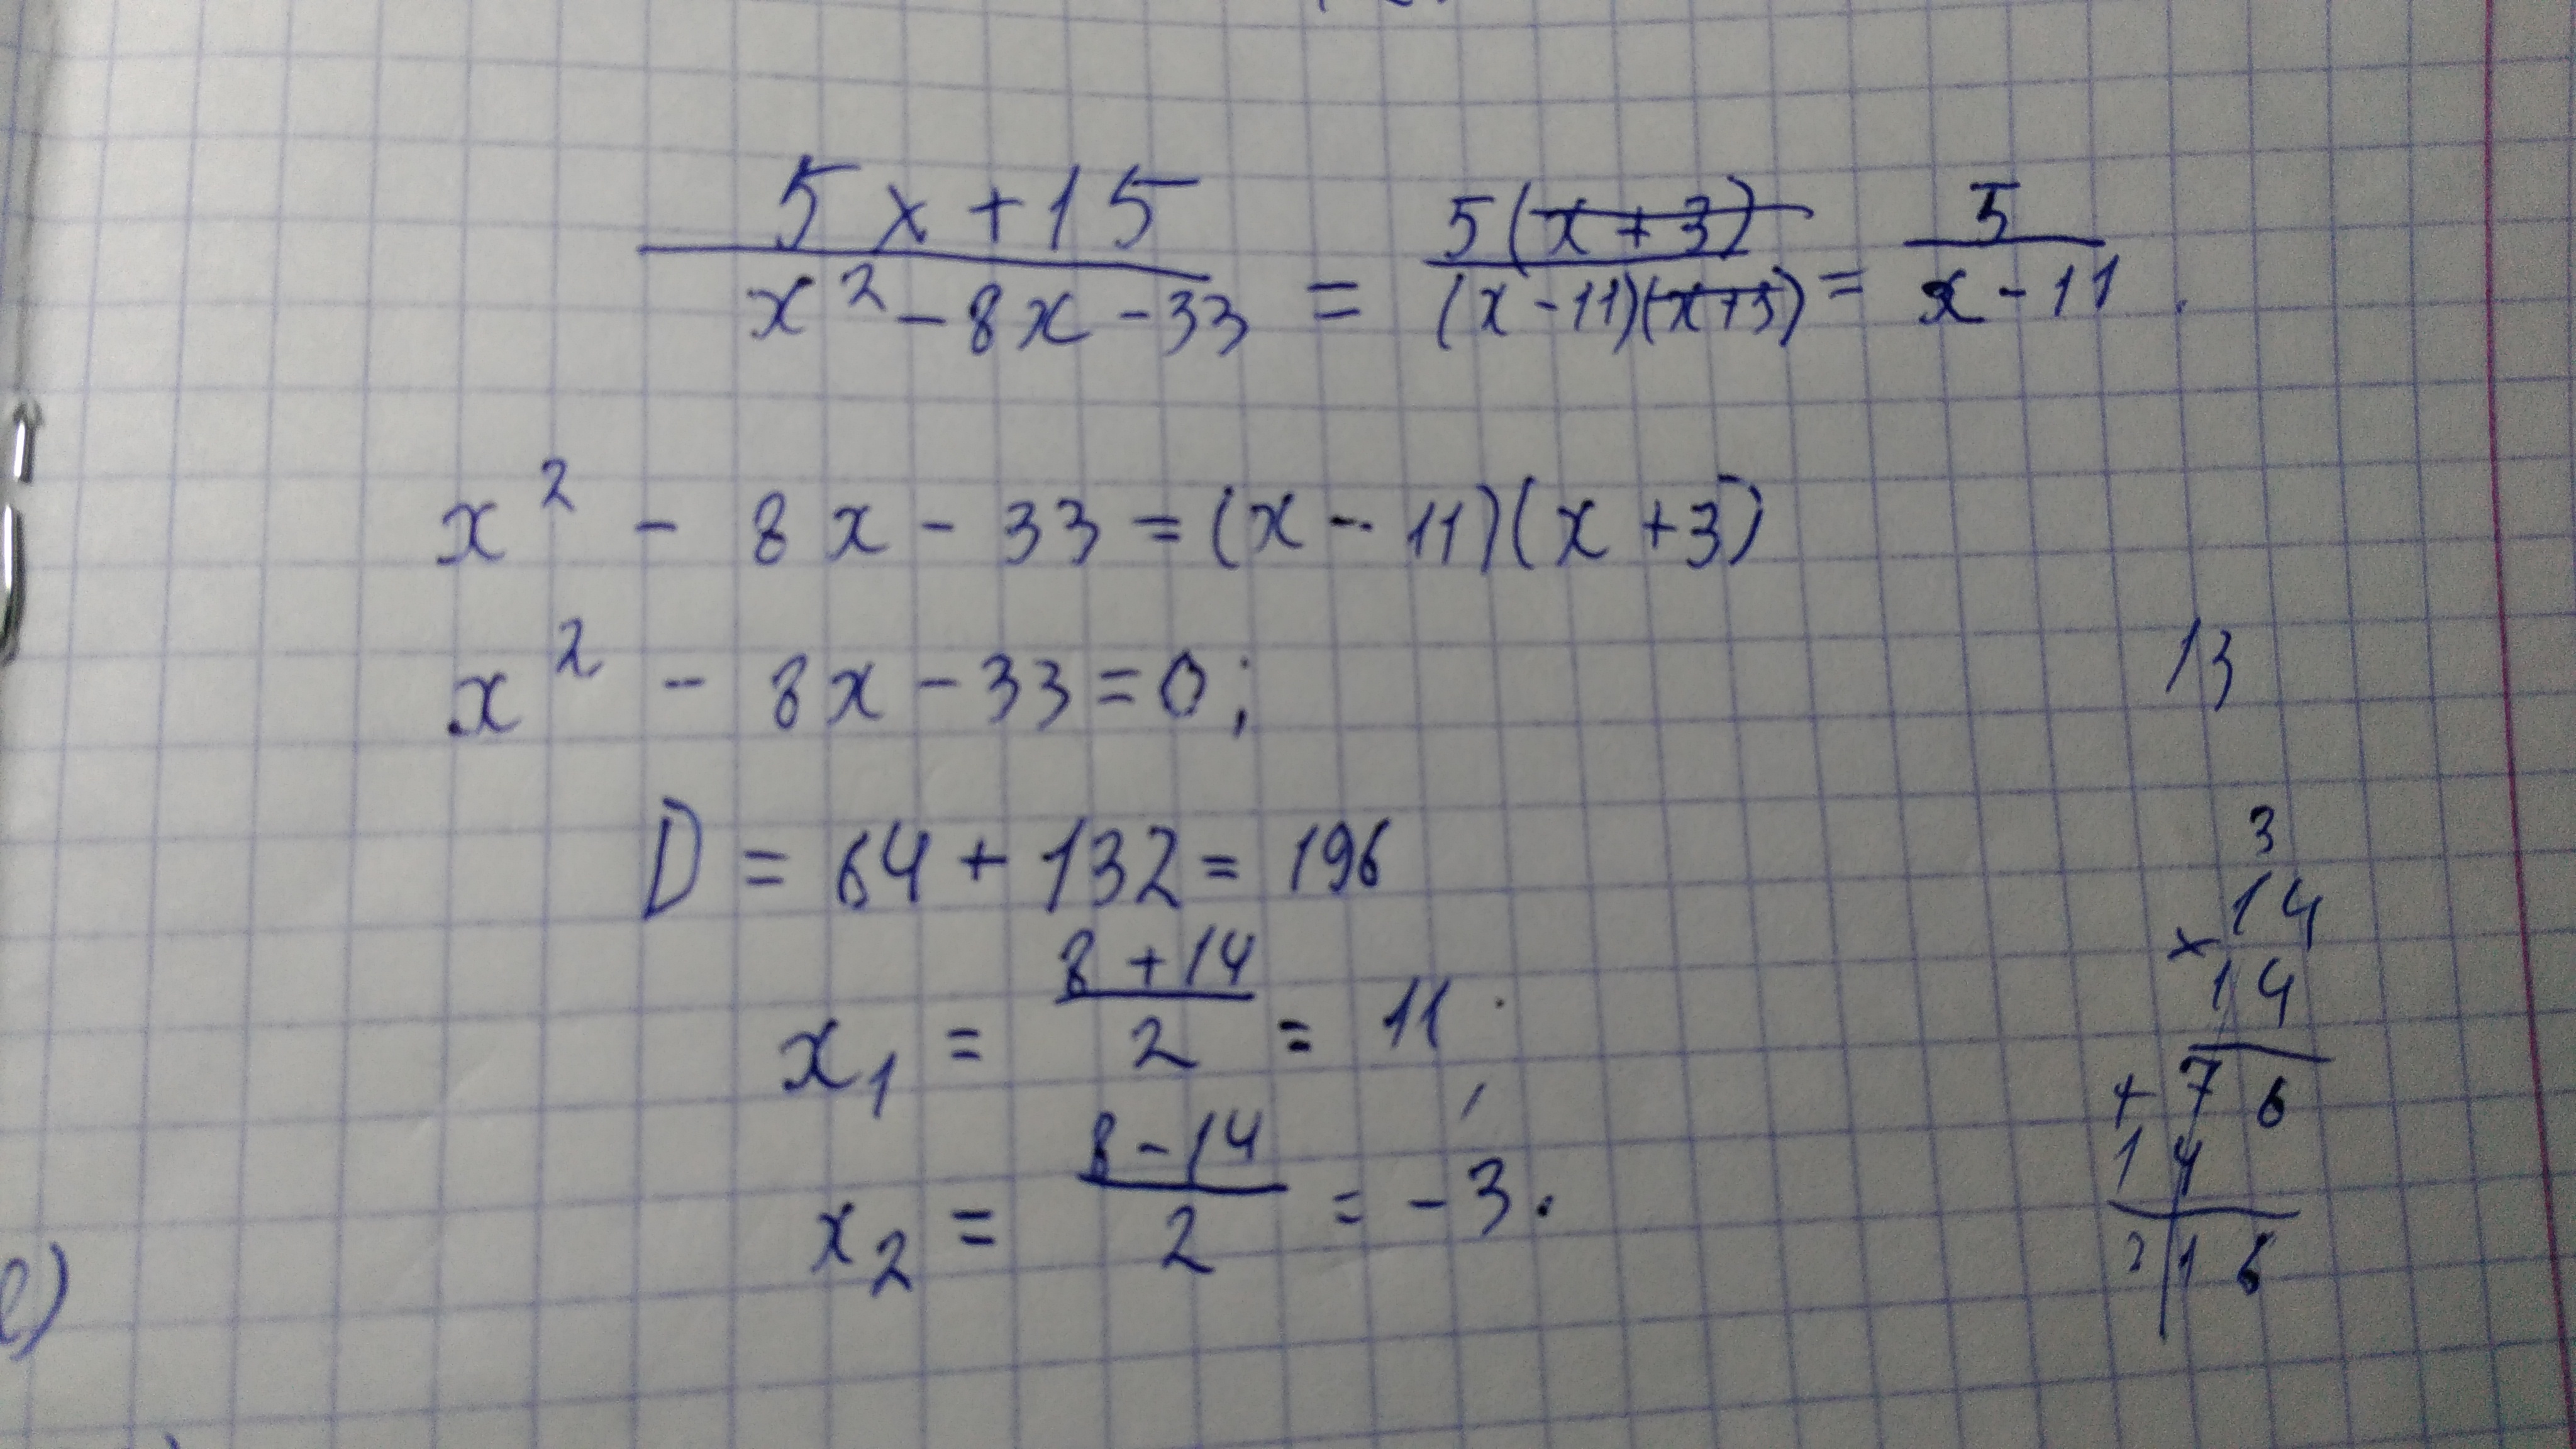 5x+15 / x² - 8x - 33 = 5(x+3) / (x-11)(x+3) = 5 / x-11.
x² - 8x - 33 = (x - 11)(x + 3)
x² - 8x - 33 = 0;
13
D = 64 + 132 = 196
x₁ = 8+14 / 2 = 11,
x₂ = 8-14 / 2 = -3.
3
14
×
14
+ 76
14
216
e)